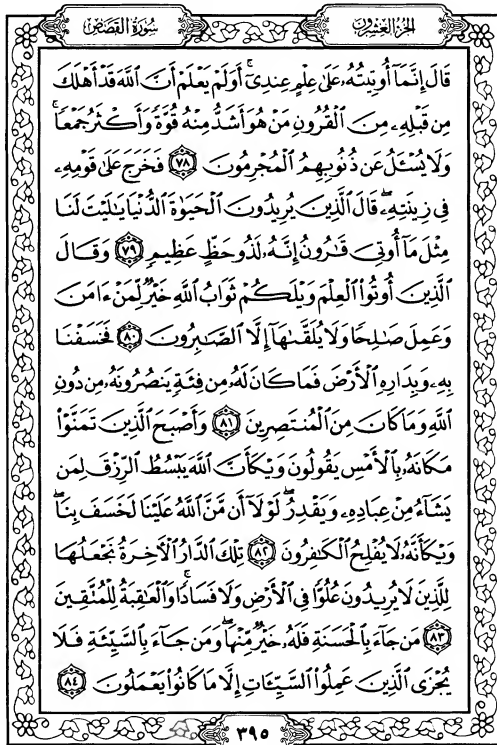 الجزء العشرون
سورة القصص
قَالَ إِنَّمَآ أُوتِيتُهُۥ عَلَىٰ عِلْمٍ عِندِىٓۚ أَوَلَمْ يَعْلَمْ أَنَّ ٱللَّهَ قَدْ أَهْلَكَ
مِن قَبْلِهِۦ مِنَ ٱلْقُرُونِ مَنْ هُوَ أَشَدُّ مِنْهُ قُوَّةً وَأَكْثَرُ جَمْعًاۚ
وَلَا يُسْـَٔلُ عَن ذُنُوبِهِمُ ٱلْمُجْرِمُونَ ٧٨ فَخَرَجَ عَلَىٰ قَوْمِهِۦ
فِى زِينَتِهِۦۖ قَالَ ٱلَّذِينَ يُرِيدُونَ ٱلْحَيَوٰةَ ٱلدُّنْيَا يَـٰلَيْتَ لَنَا
مِثْلَ مَآ أُوتِىَ قَـٰرُونُ إِنَّهُۥ لَذُو حَظٍّ عَظِيمٍ ٧٩ وَقَالَ
ٱلَّذِينَ أُوتُوا۟ ٱلْعِلْمَ وَيْلَكُمْ ثَوَابُ ٱللَّهِ خَيْرٌ لِّمَنْ ءَامَنَ
وَعَمِلَ صَـٰلِحًا وَلَا يُلَقَّىٰهَآ إِلَّا ٱلصَّـٰبِرُونَ ٨٠ فَخَسَفْنَا
بِهِۦ وَبِدَارِهِ ٱلْأَرْضَ فَمَا كَانَ لَهُۥ مِن فِئَةٍ يَنصُرُونَهُۥ مِن دُونِ
ٱللَّهِ وَمَا كَانَ مِنَ ٱلْمُنتَصِرِينَ ٨١ وَأَصْبَحَ ٱلَّذِينَ تَمَنَّوْا۟
مَكَانَهُۥ بِٱلْأَمْسِ يَقُولُونَ وَيْكَأَنَّ ٱللَّهَ يَبْسُطُ ٱلرِّزْقَ لِمَن
يَشَآءُ مِنْ عِبَادِهِۦ وَيَقْدِرُۖ لَوْلَآ أَن مَّنَّ ٱللَّهُ عَلَيْنَا لَخَسَفَ بِنَاۖ
وَيْكَأَنَّهُۥ لَا يُفْلِحُ ٱلْكَـٰفِرُونَ ٨٢ تِلْكَ ٱلدَّارُ ٱلْـَٔاخِرَةُ نَجْعَلُهَا
لِلَّذِينَ لَا يُرِيدُونَ عُلُوًّا فِى ٱلْأَرْضِ وَلَا فَسَادًاۚ وَٱلْعَـٰقِبَةُ لِلْمُتَّقِينَ
٨٣ مَن جَآءَ بِٱلْحَسَنَةِ فَلَهُۥ خَيْرٌ مِّنْهَاۖ وَمَن جَآءَ بِٱلسَّيِّئَةِ فَلَا
يُجْزَى ٱلَّذِينَ عَمِلُوا۟ ٱلسَّيِّـَٔاتِ إِلَّا مَا كَانُوا۟ يَعْمَلُونَ ٨٤
٣٩٥